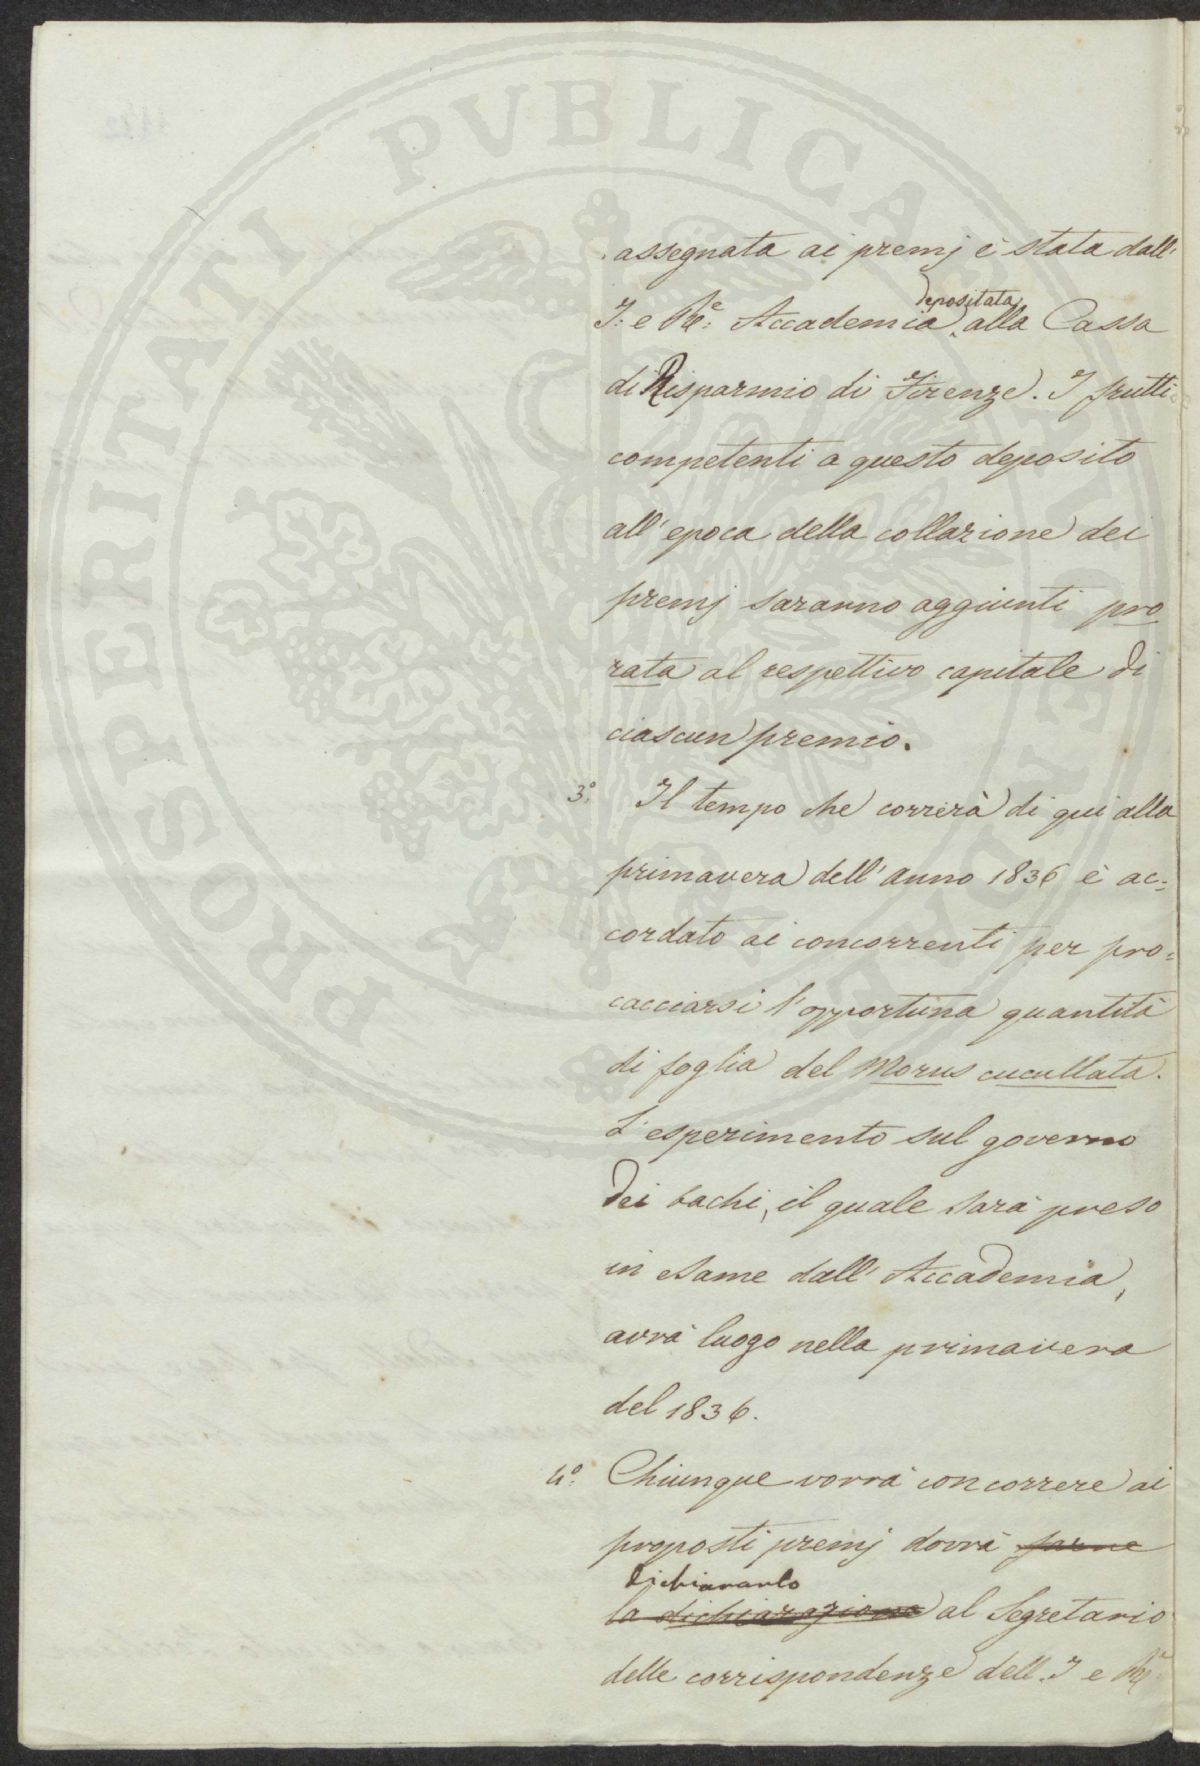 PROSPERITATI PVBLICAE AVGENDAE
assegnata ai premj è stata dall'
I: e R.e: Accademia depositata alla Cassa
di Risparmio di Firenze. I frutti
competenti a questo deposito
all'epoca della collazione dei
premj saranno aggiunti pro
rata al respettivo capitale di
ciascun premio.
3.° Il tempo che correrà di qui alla
primavera dell'anno 1836 è ac=
cordato ai concorrenti per pro=
cacciarsi l'opportuna quantità
di foglia del Morus cucullata.
L'esperimento sul governo
dei bachi, il quale sarà preso
in esame dall'Accademia,
avrà luogo nella primavera
del 1836.
4.° Chiunque vorrà concorrere ai
proposti premj dovrà farne
dichiararlo
la dichiarazione al Segretario
delle corrispondenze dell'I e R.e